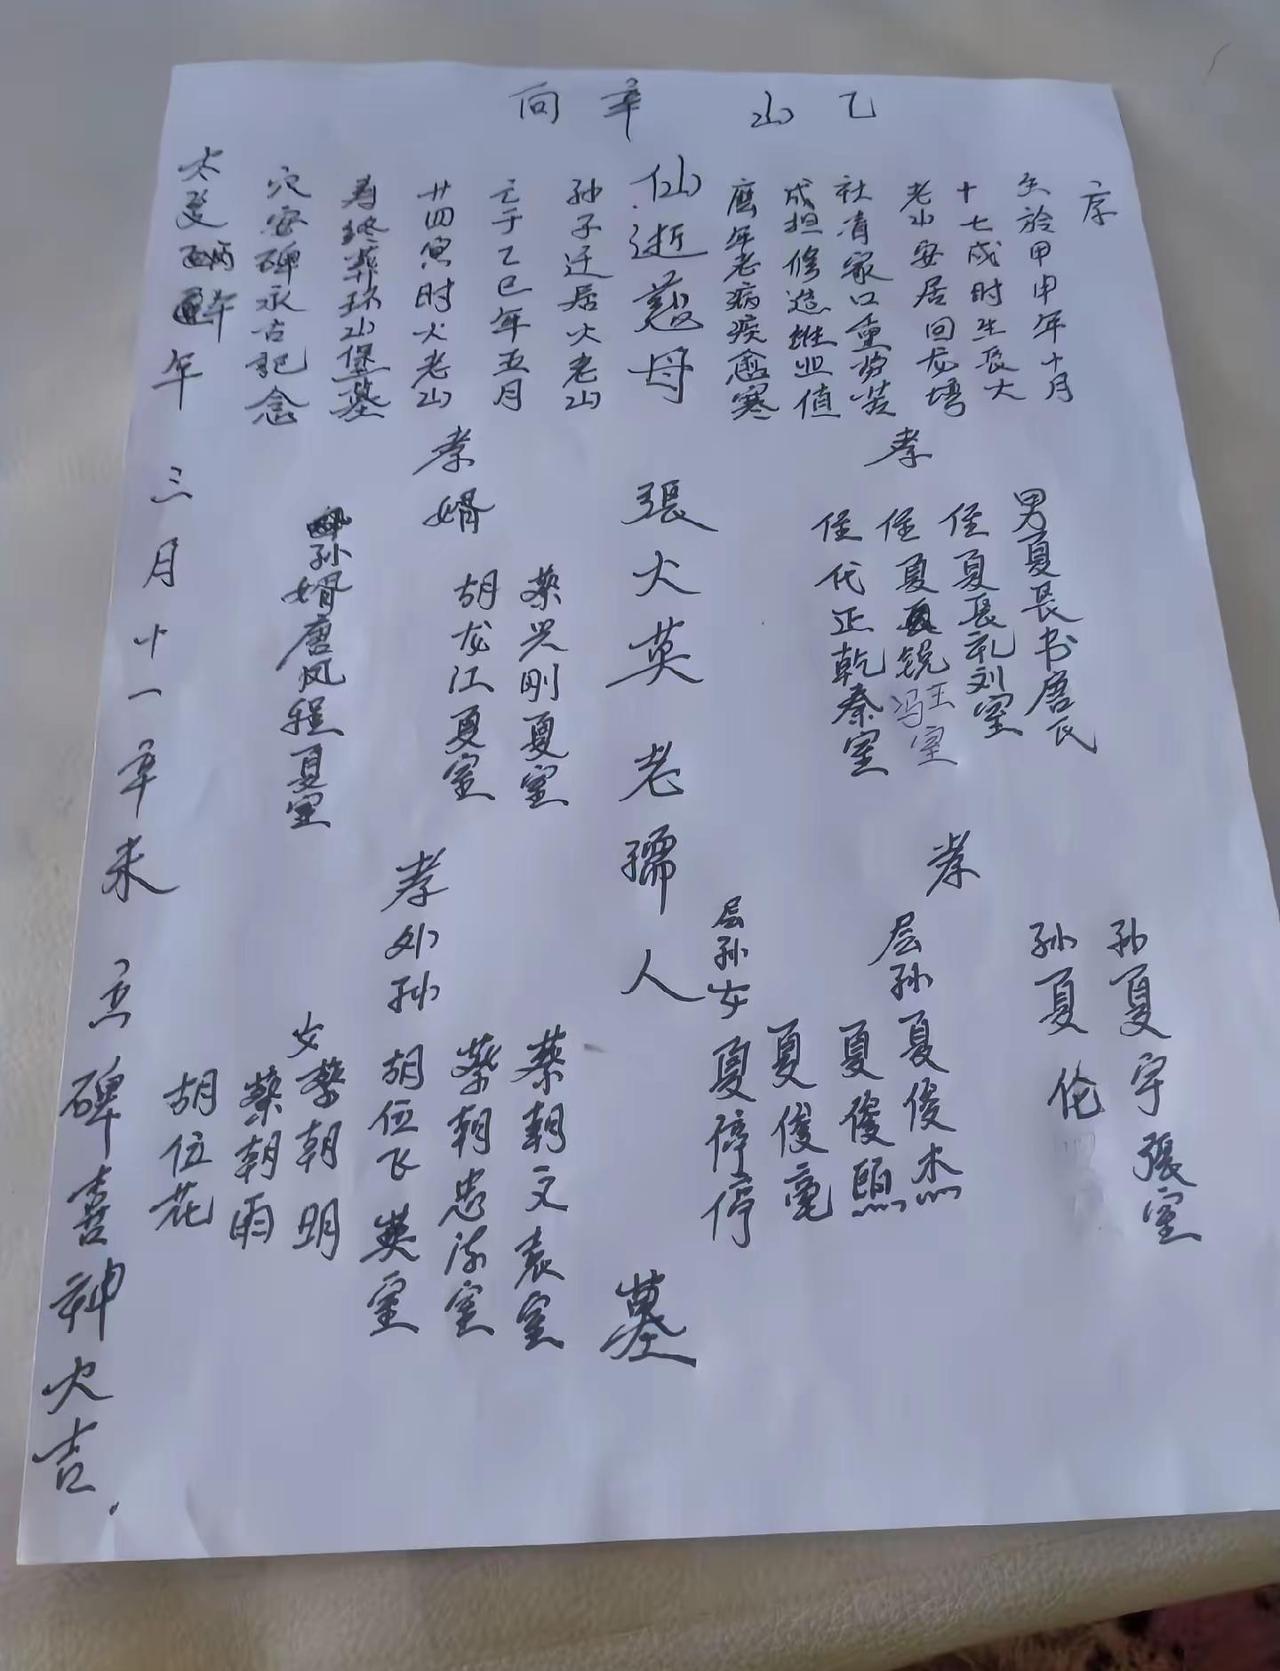 乙山 辛向
序
生於甲申年十月
十七戌时生长大
老山安居回龙塆
社育家口重劳苦
成担修造继业值
歷年老病疾愈寒
仙逝慈母張火英老孺人墓
孙子迁居火老山
亡于乙巳年五月
廿四寅时火老山
寿终葬环山堡墓
穴安碑永古記念
孝
男夏長书唐氏
侄夏長礼刘室
侄夏锐冯王室
侄代正乾秦室
孝
孙夏宇張室
孙夏伦
层孙夏俊杰
夏俊熙
夏俊亳
层孙女夏停停
孝婿
蔡兴刚夏室
胡龙江夏室
孙婿唐凤程夏室
孝外孙
蔡朝文袁室
蔡朝忠陈室
胡位飞英室
女蔡朝明
蔡朝雨
胡位花
年三月十一辛未立碑喜神火吉.